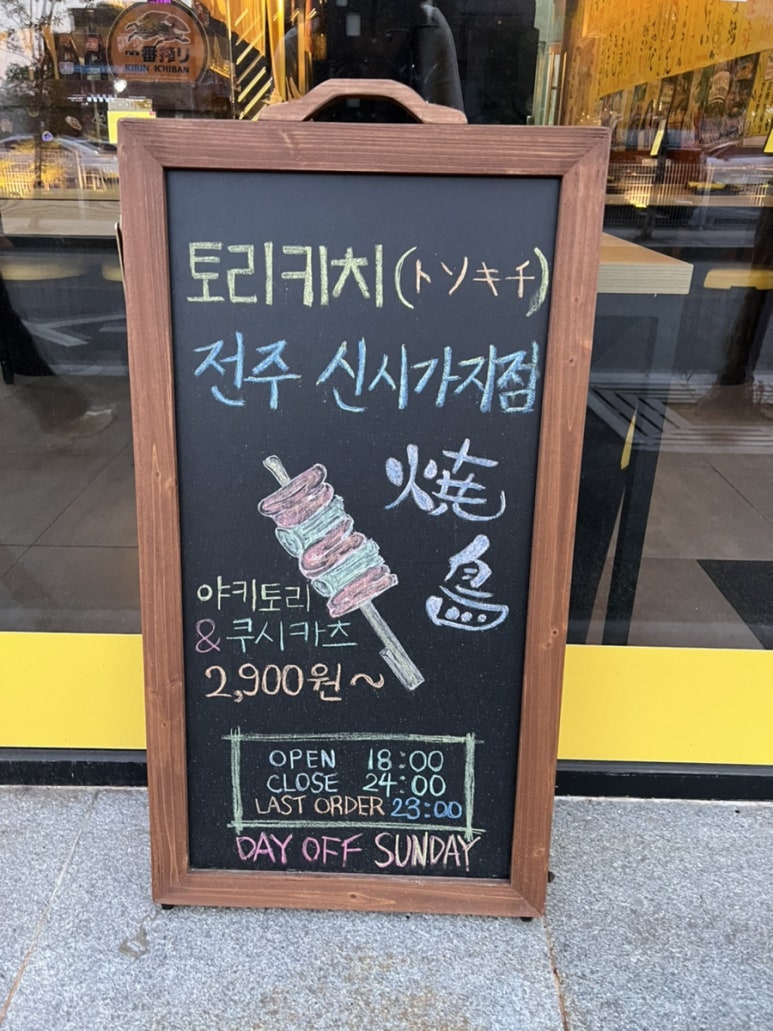 一番搾り
KIRIN ICHIBAN
토리키치(トソキチ)
전주 신시가지점
焼
鳥
야키토리
& 쿠시카츠
2,900원~
OPEN 18:00
CLOSE 24:00
LAST ORDER 23:00
DAY OFF SUNDAY